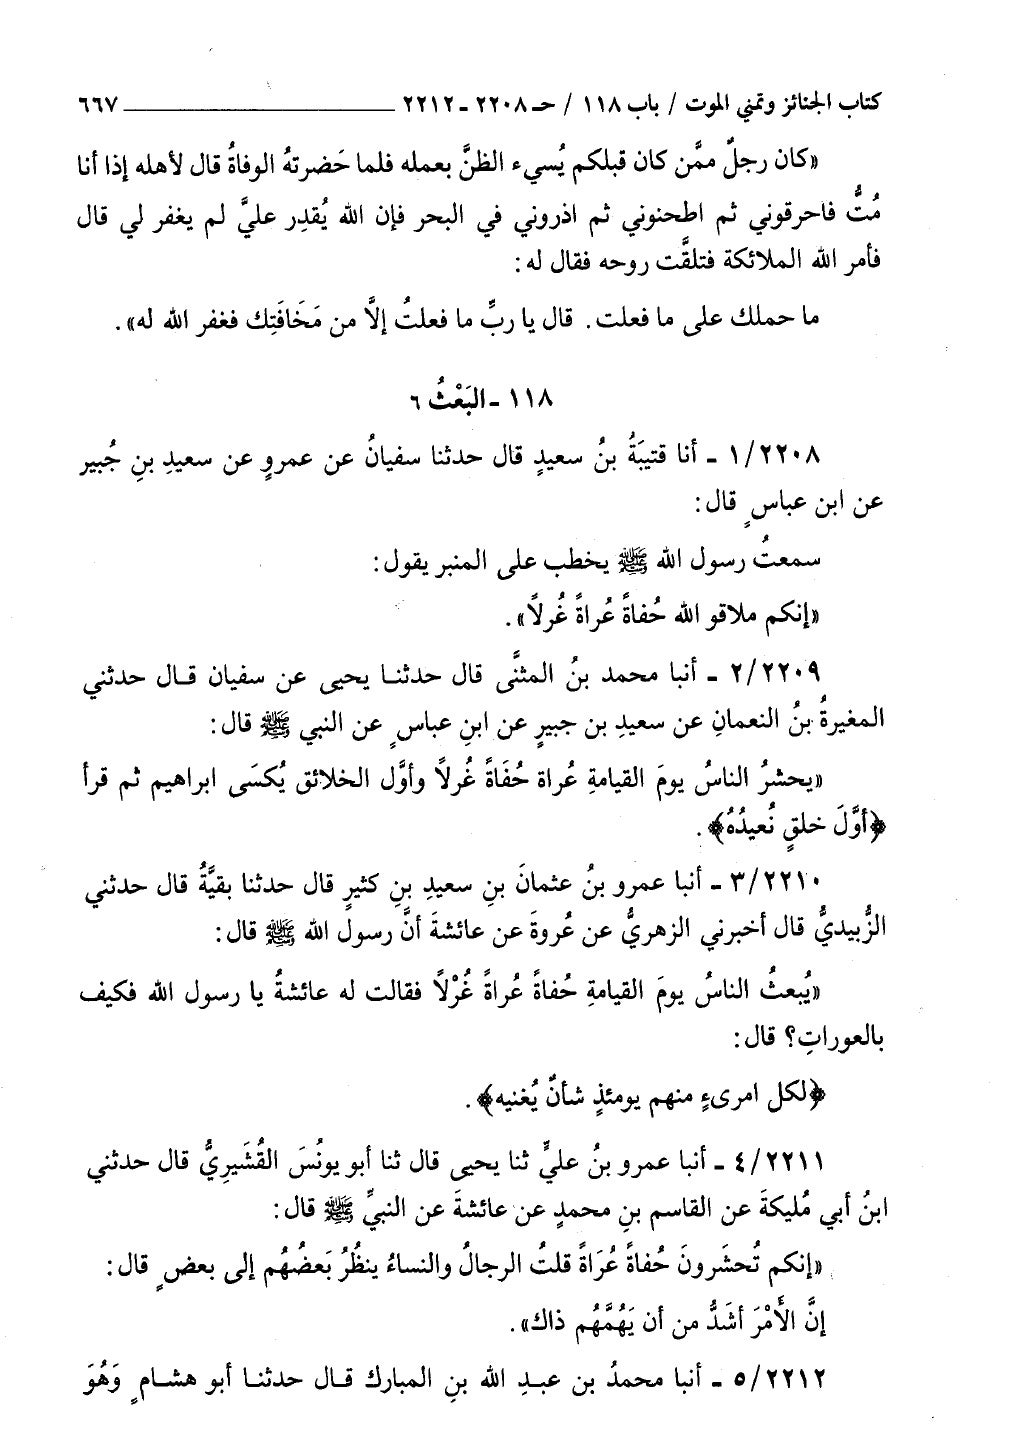 كتاب الجنائز وتمني الموت / باب ١١٨ / حـ ٢٢٠٨ ـ ٢٢١٢ ــــــــــــــــــــــــــــ ٦٦٧
«كان رجلٌ ممَّن كان قبلكم يُسيء الظنَّ بعمله فلما حَضرتهُ الوفاةُ قال لأهله إذا أنا
مُتُّ فاحرقوني ثم اطحنوني ثم اذروني في البحر فإن الله يُقدِر عليَّ لم يغفر لي قال
فأمر الله الملائكة فتلقَّت روحه فقال له :
ما حملك على ما فعلت. قال يا ربِّ ما فعلتُ إلَّا من مَخَافَتِك فغفر الله له».
١١٨ ـ البَعْثُ ٦
١/٢٢٠٨ ـ أنا قتيبَةُ بنُ سعيدٍ قال حدثنا سفيانُ عن عمروٍ عن سعيدِ بنِ جُبير
عن ابن عباسٍ قال :
سمعتُ رسول الله ﷺ يخطب على المنبر يقول :
«إنكم ملاقو الله حُفاةً عُراةً غُرلاً».
٢/٢٢٠٩ ـ أنبا محمد بنُ المثنَّى قال حدثنـا يحيى عن سفيان قـال حدثني
المغيرةُ بنُ النعمانِ عن سعيدِ بن جبيرٍ عن ابنِ عباسٍ عن النبي ﷺ قال :
«يحشرُ الناسُ يومَ القيامةِ عُراة حُفَاةً غُرلاً وأوَّل الخلائق يُكسَى ابراهيم ثم قرأ
﴿أوَّلَ خلقٍ نُعيدُهُ﴾ .
٣/٢٢١٠ ـ أنبا عمرو بنُ عثمانَ بنِ سعيدِ بنِ كثيرٍ قال حدثنا بقيَّةُ قال حدثني
الزُّبيديُّ قال أخبرني الزهريُّ عن عُروةَ عن عائشةَ أنَّ رسول الله ﷺ قال :
«يُبعثُ الناسُ يومَ القيامةِ حُفاةً عُراةً غُرْلاً فقالت له عائشةُ يا رسول الله فكيف
بالعوراتِ؟ قال :
﴿لكل امرىءٍ منهم يومئذٍ شأنٌ يُغنيه﴾ .
٤/٢٢١١ ـ أنبا عمرو بنُ عليٍّ ثنا يحيى قال ثنا أبو يونُسَ القُشَيرِيُّ قال حدثني
ابنُ أبي مُليكةَ عن القاسم بنِ محمدٍ عن عائشةَ عن النبيِّ ﷺ قال :
«إنكم تُحشَرونَ حُفاةً عُرَاةً قلتُ الرجالُ والنساءُ ينظُرُ بَعضُهُم إلى بعضٍ قال :
إنَّ الأَمْرَ أشَدُّ من أن يَهُمَّهُم ذاك».
٥/٢٢١٢ ـ أنبا محمدُ بن عبـدِ الله بنِ المبارك قـال حدثنـا أبو هشـامٍ وَهُوَ